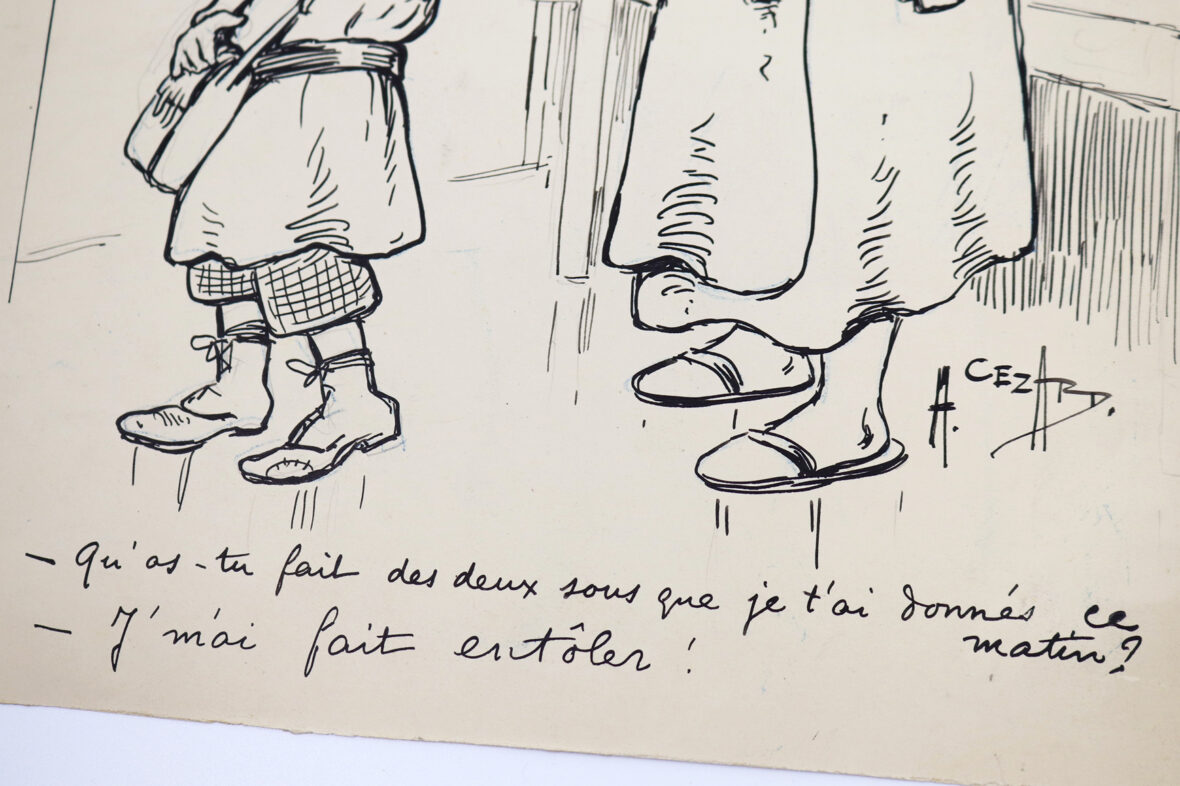 A. CEZARD.
- Qu'as-tu fait des deux sous que je t'ai donnés ce
matin?
- J'm'ai fait entôler !